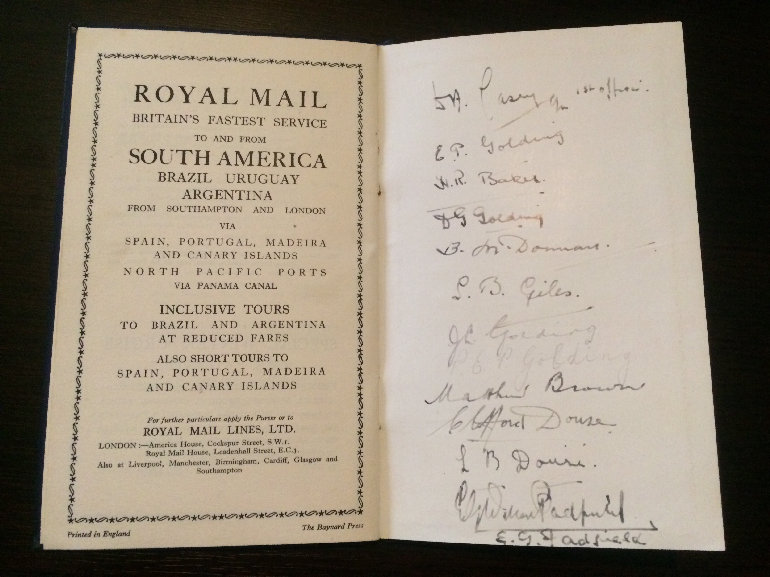 ROYAL MAIL
BRITAIN'S FASTEST SERVICE
TO AND FROM
SOUTH AMERICA
BRAZIL URUGUAY
ARGENTINA
FROM SOUTHAMPTON AND LONDON
VIA
SPAIN, PORTUGAL, MADEIRA
AND CANARY ISLANDS
NORTH PACIFIC PORTS
VIA PANAMA CANAL
INCLUSIVE TOURS
TO BRAZIL AND ARGENTINA
AT REDUCED FARES
ALSO SHORT TOURS TO
SPAIN, PORTUGAL, MADEIRA
AND CANARY ISLANDS
For further particulars apply the Purser or to
ROYAL MAIL LINES, LTD.
LONDON:—America House, Cockspur Street, S.W.1.
Royal Mail House, Leadenhall Street, E.C.3.
Also at Liverpool, Manchester, Birmingham, Cardiff, Glasgow and
Southampton
Printed in England
The Baynard Press
Casey 1st officer.
E.P. Golding
H.R. Baker.
D G Golding
B.
L. B. Giles.
Golding
P Golding
Matthew Brown
Clifford Douse
L B Douse.
Padfield
E. G. Padfield